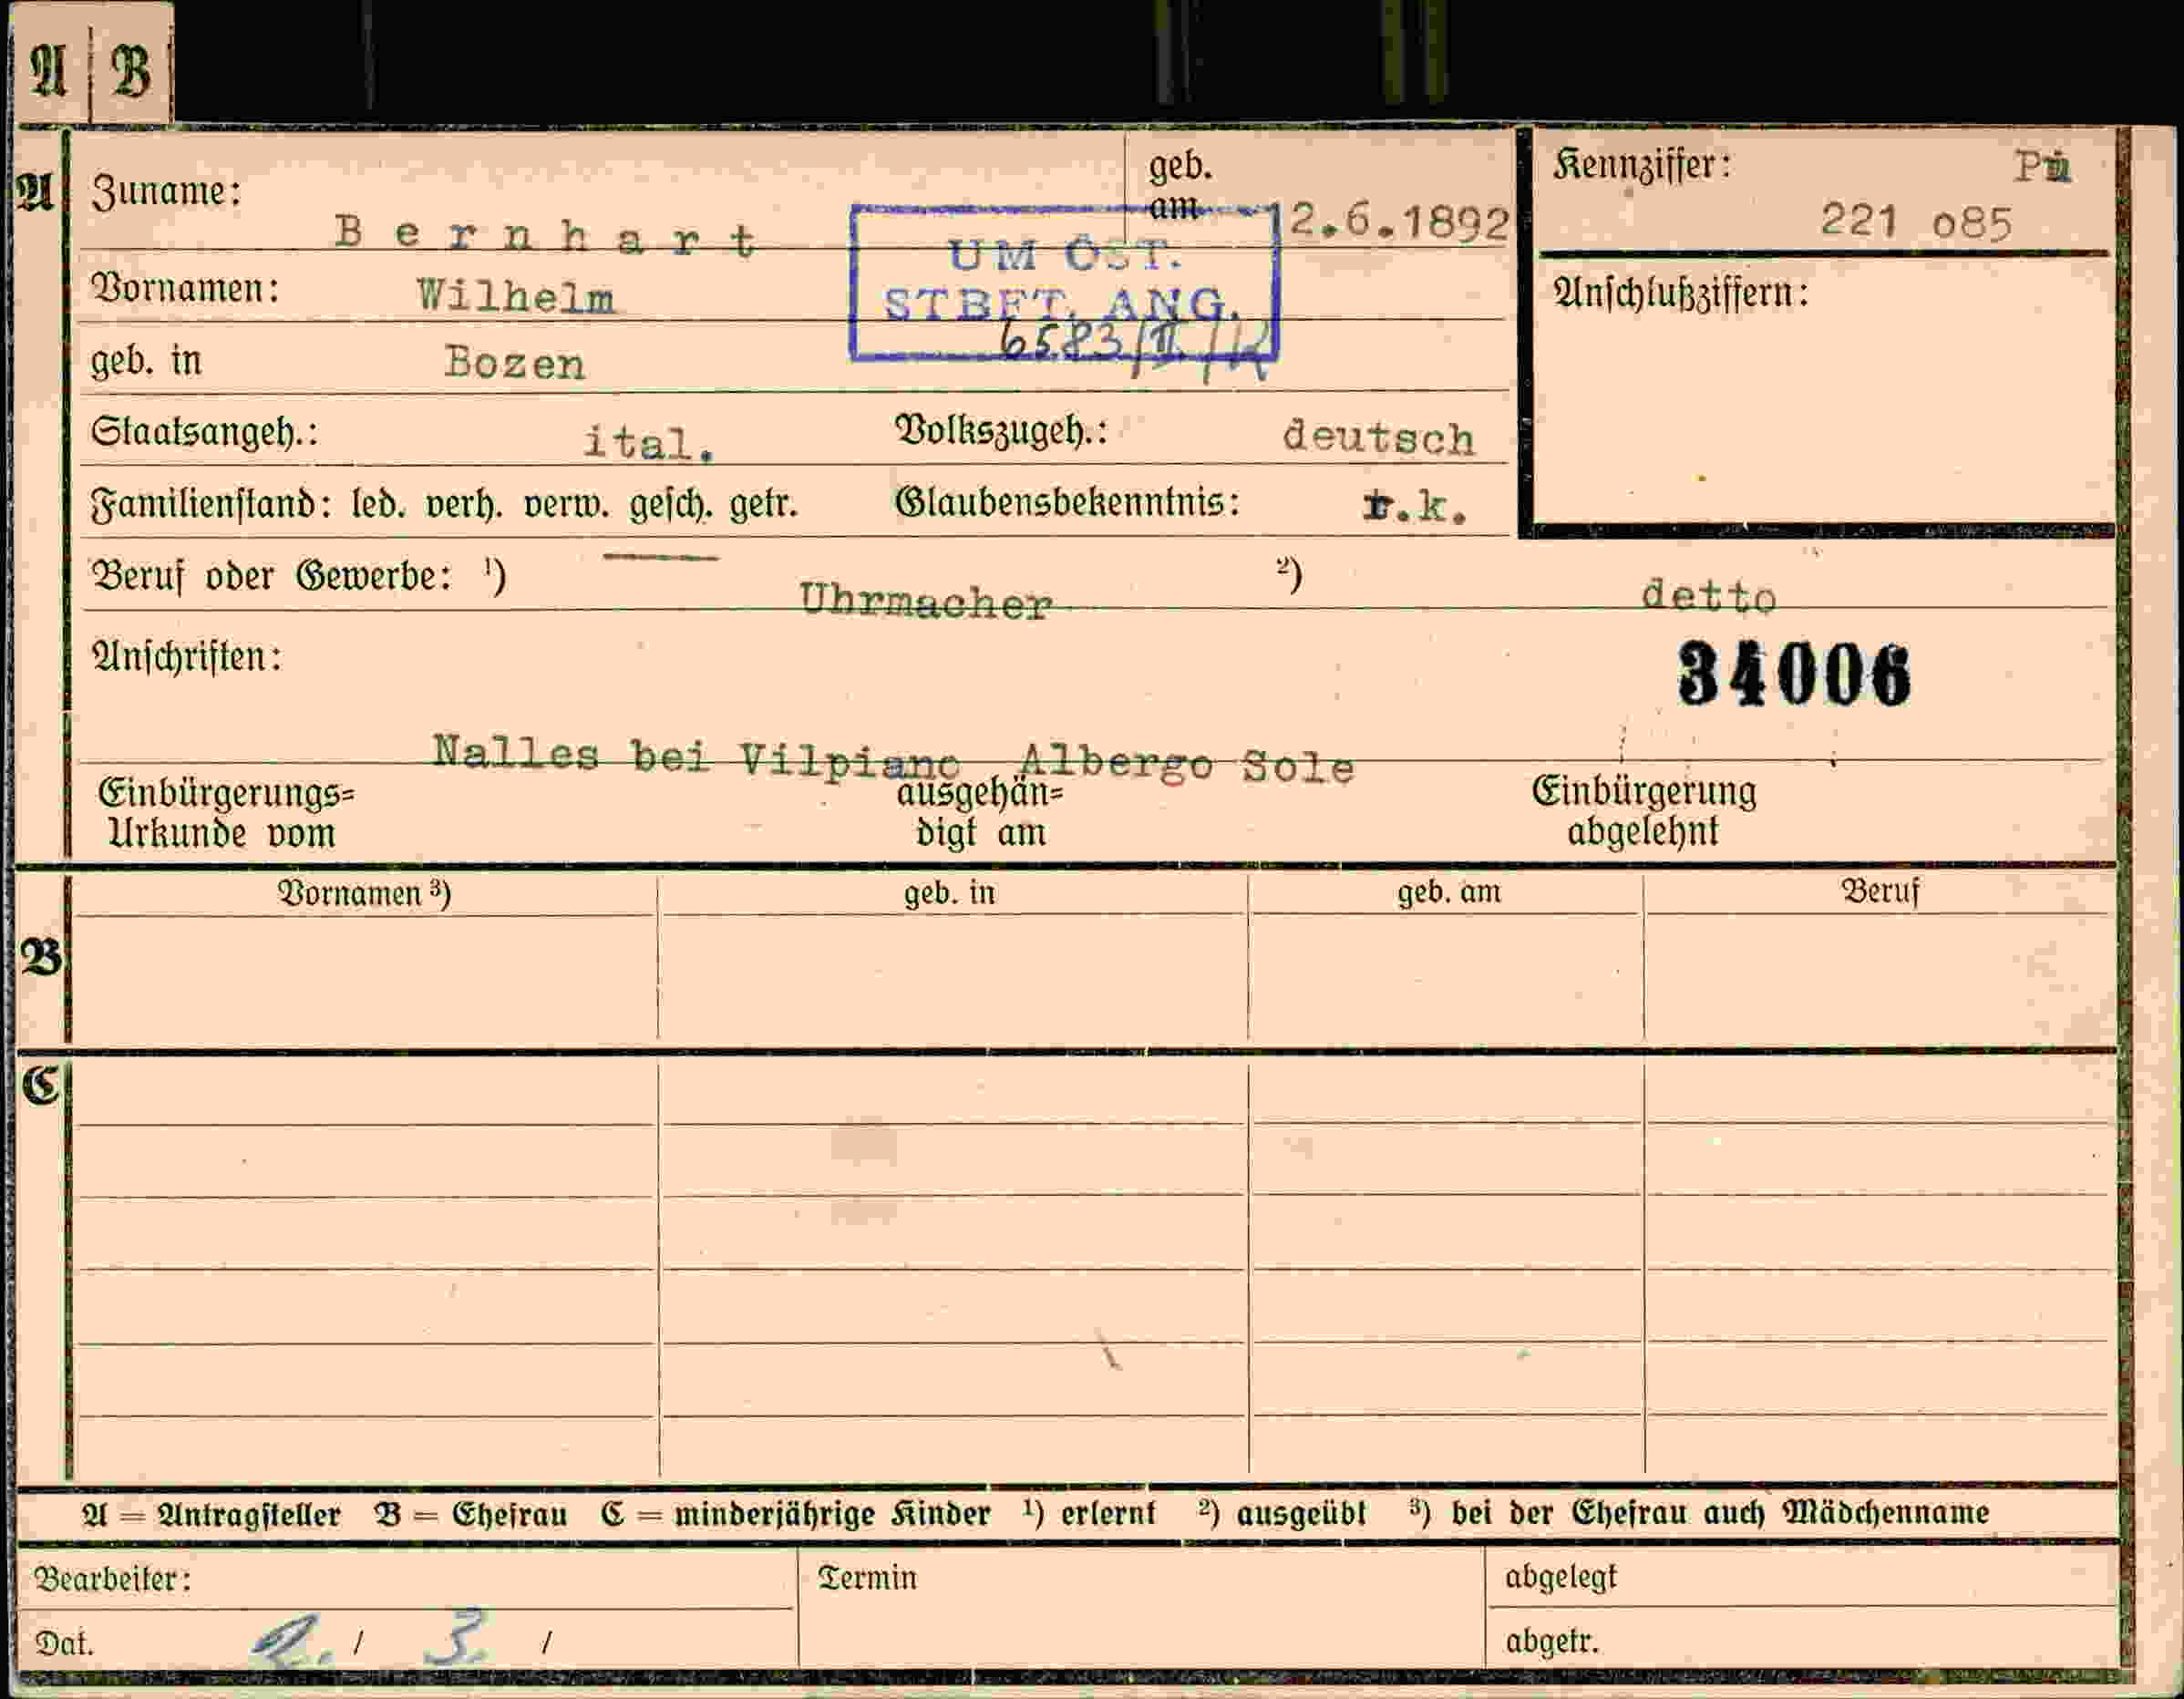 A | B
A Zuname: B e r n h a r t geb. am 12.6.1892 Kennziffer: 221 o85
UM ÖST.
STBFT. ANG.
6583/II/
Vornamen: Wilhelm Anschlußziffern:
geb. in Bozen
Staatsangeh.: ital. Volkszugeh.: deutsch
Familienstand: led. verh. verw. gesch. getr. Glaubensbekenntnis: r.k.
Beruf oder Gewerbe: ¹) Uhrmacher ²) detto
Anschriften: 34006
Nalles bei Vilpiano Albergo Sole
Einbürgerungs= ausgehän= Einbürgerung
Urkunde vom digt am abgelehnt
Vornamen ³) geb. in geb. am Beruf
B
C
A = Antragsteller B = Ehefrau C = minderjährige Kinder ¹) erlernt ²) ausgeübt ³) bei der Ehefrau auch Mädchenname
Bearbeiter: Termin abgelegt
Dat. 2. / 3. / abgetr.